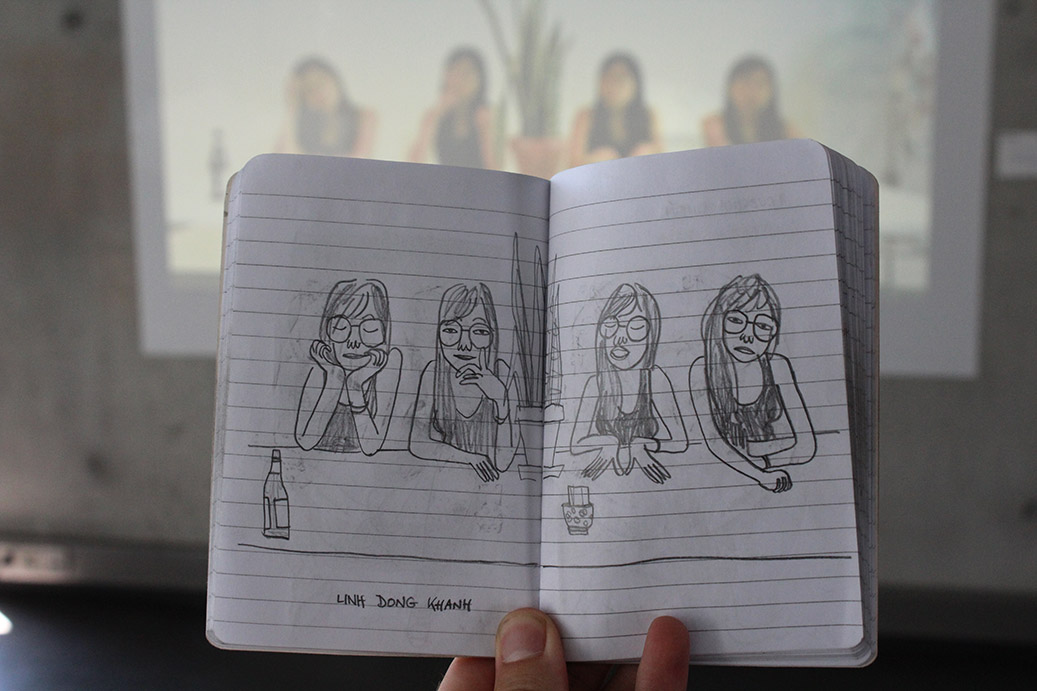 LINH DONG KHANH